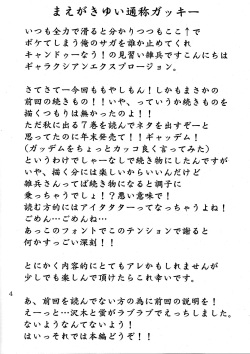 まえがきゆい通称ガッキー
いつも全力で滑ると分かりつつもここ↑で
ボケてしまう俺のサガを誰か止めてくれ
キャンドゥーなう！の見習い雑兵ですこんにちは
ギャラクシアンエクスプロージョン。
さてさてー今回ももやしもん！しかもまさかの
前回の続きもの！！いや、っていうか続きものを
描くつもりは無かったのよ！！
ただ秋に出る７巻を読んでネタを出すぞーと
思ってたのに年末発売て！！ギャッデム！
（ガッデムをちょっとカッコ良く言ってみた）
というわけでしゃーなしで続き物にしたんですが
いや、描く分には楽しいからいいんだけど
雑兵さんってば続き物になると調子に
乗っちゃうでしょ！？悪い意味で！
読む方的にはアイタタタってなっちゃうよね！
ごめん…ごめんね…
あっこのフォントでこのテンションで謝ると
何かすっごい深刻！！
とにかく内容的にとてもアレかもしれませんが
少しでも楽しんで頂けたらこれ幸いです。
4
あ、前回を読んでない方の為に前回の説明を！
えーっと…沢木と蛍がラブラブでえっちしました。
ないようなんてないよう！
はいっそれでは本編どうぞ！！